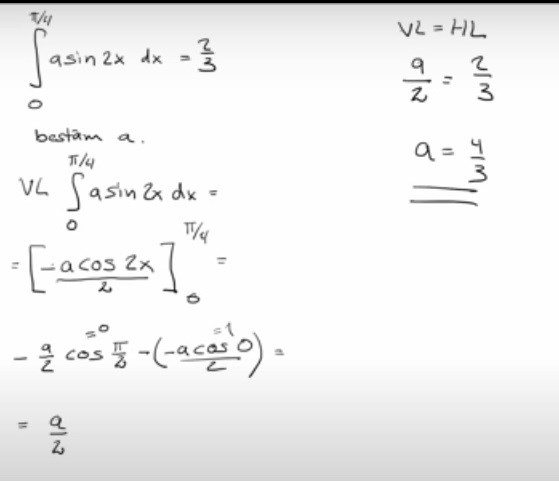 ∫₀^{π/4} a sin 2x dx = 2/3
bestäm a.
VL ∫₀^{π/4} a sin 2x dx =
= [-a cos 2x / 2]₀^{π/4} =
=0 =1
- a/2 cos π/2 - (-a cos 0 / 2) =
= a/2
VL = HL
a/2 = 2/3
a = 4/3